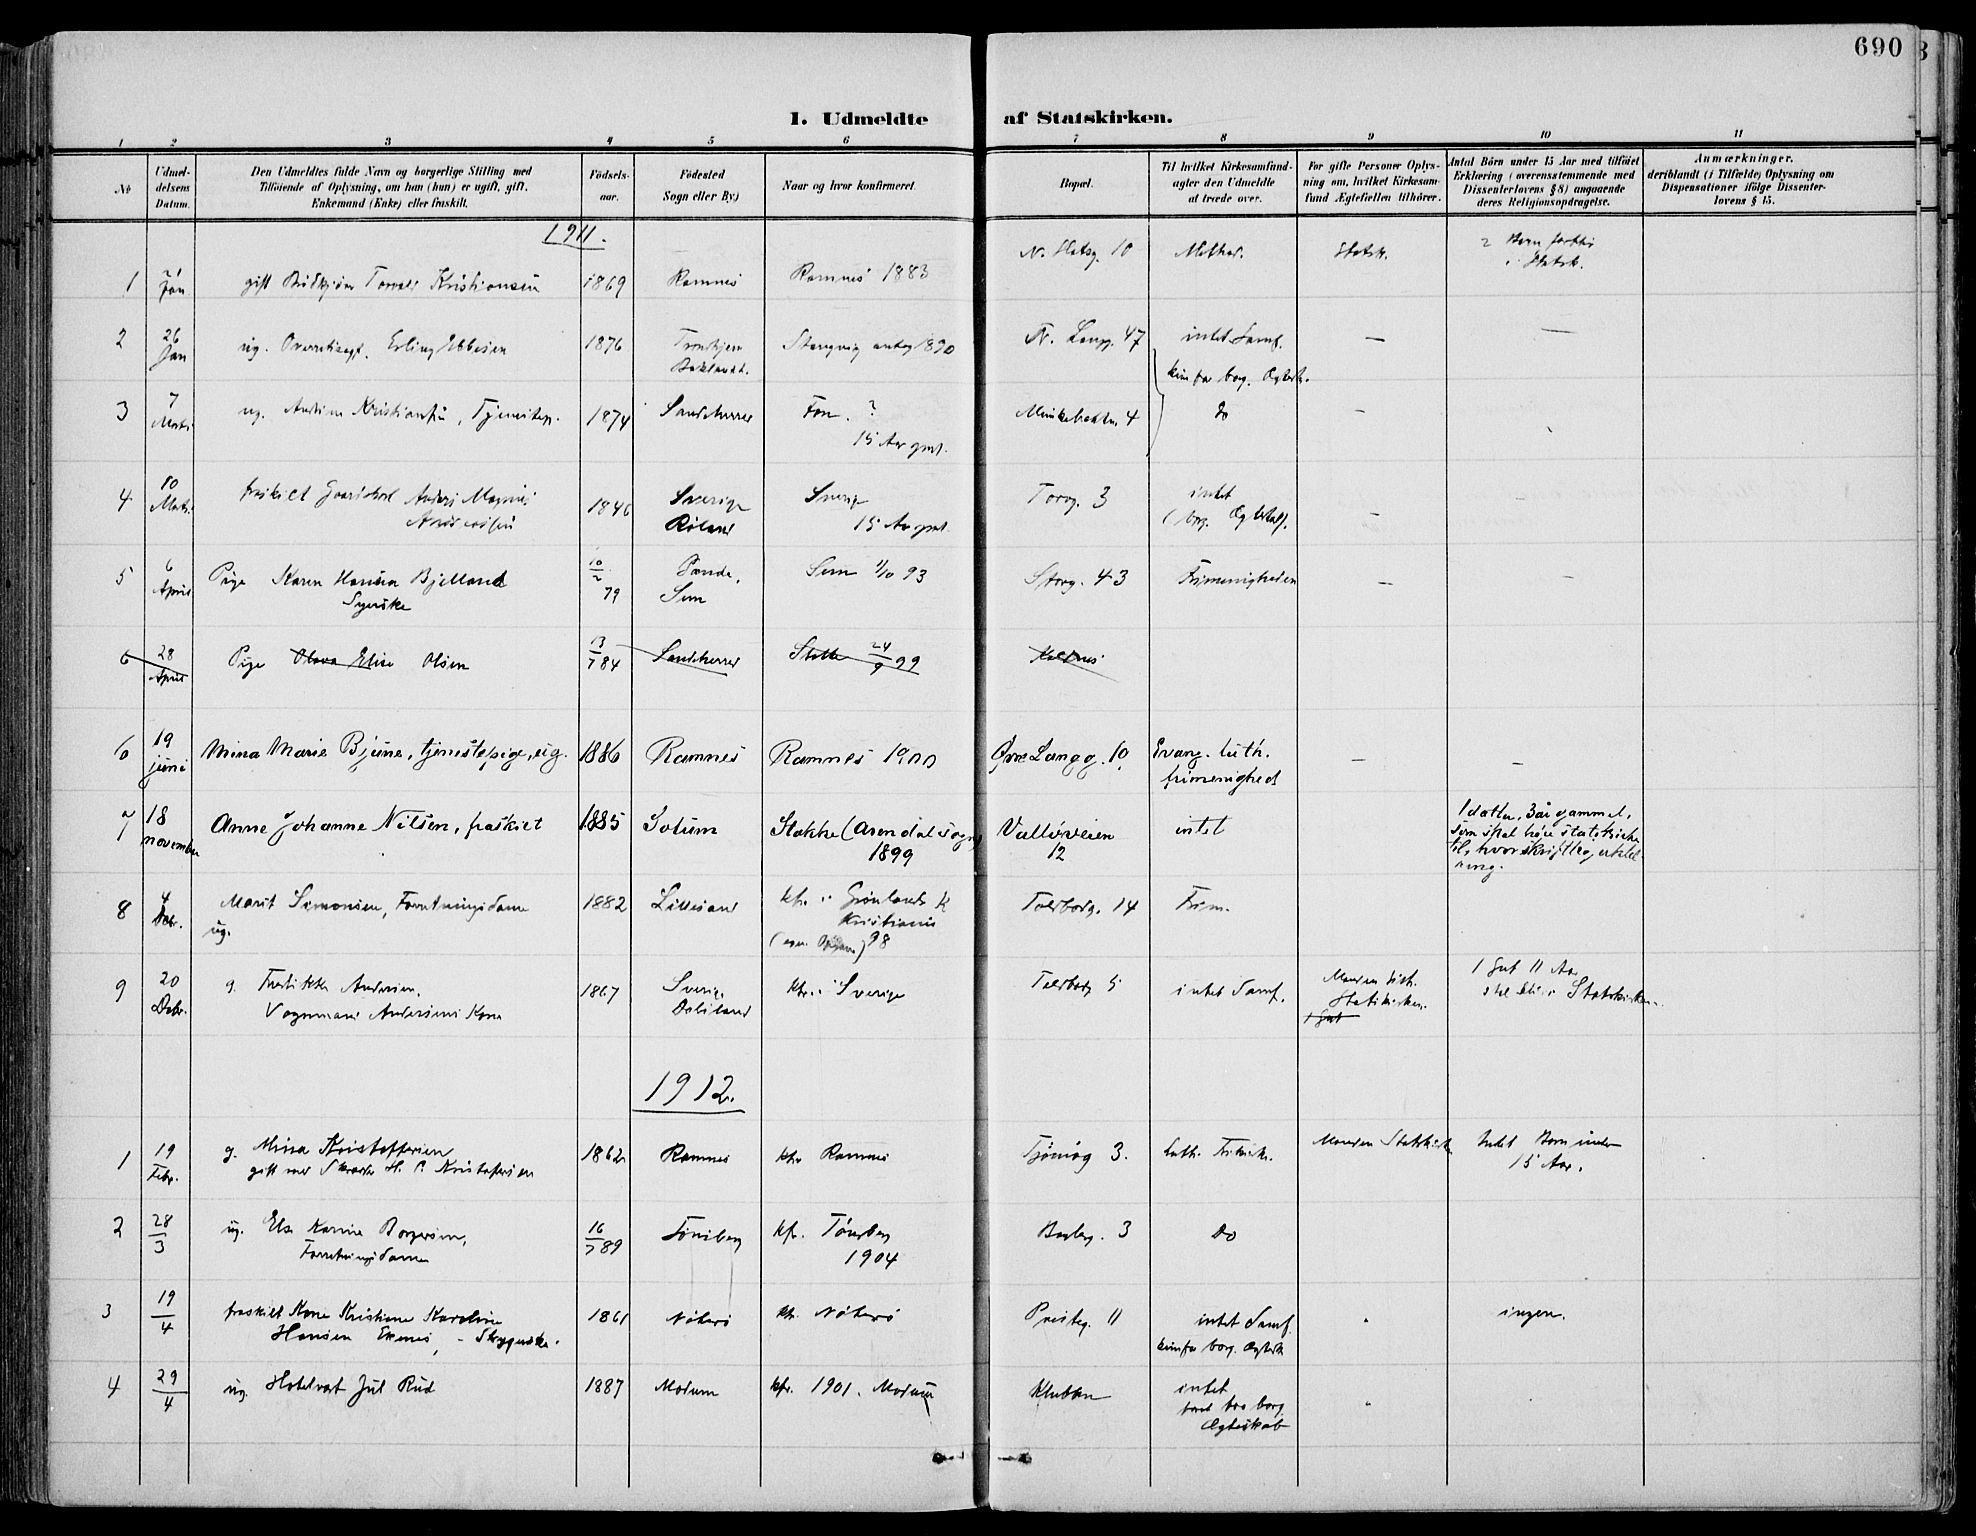 690
1. Udmeldte af Statskirken.
1 2 3 4 5 6 7 8 9 10 11
No
Udmel-
delsens
Datum.
Den Udmeldtes fulde Navn og borgerlige Stilling med
Tilføiende af Oplysning, om han (hun) er ugift, gift.
Enkemand (Enke) eller fraskilt.
Fødsels-
aar.
Fødested
Sogn eller By.)
Naar og hvor konfirmeret
Bopæl.
Til hvilket Kirkesamfund-
agter den Udmeldte
at træde over.
For gifte Personer Oplys-
ning om, hvilket Kirkesam-
fund Ægtefællen tilhører.
Antal Børn under 15 Aar med tilføiet
Erklæring (overensstemmende med
Dissenterlovens § 8) angaaende
deres Religionsopdragelse.
Anmærkninger.
deriblandt (i Tilfælde) Oplysning om
Dispensationer ifølge Dissenter-
lovens § 15.
1911.
1 7 Jan gift Kristiansen 1869 Ramnes Ramnes 1883 N. 10 Method. Statsk. 2 Børn
i Statsk.
2 26 Jan ug. Erling Ebbesen 1876 Trondhjem
Baklandt. Stangvig 1890 N. Langg. 47 intet Samf. —
kun for borg. Ægtesk.
3 7 Marts ug. Andrine Kristiansen, Tjenestep. 1874 Sandeherred Fon. ?
15 Aar gml. 4 Do -
4 10 Marts. fraskilt Anders Magnus
Andersen 1846 Sverige Sverige
15 Aar gml. Torvg. 3 intet
(borg. Ægteskab). -
5 6 April Pige Karen Hansine Bjelland
Syerske 10/2 79 Sem Sem 1/10 93 Storg. 43 Frimenigheden -
6 28 April Pige Olava Elise Olsen 13/7 84 Sandeherred Stokke 24/9 99 Kaldnes
6 19 juni Mina Marie Bjune, tjenestepige, ug. 1886 Ramnes Ramnes 1900 Øvre Langg. 10. Evang. luth.
frimenighed — —
7 18 november Anne Johanne Nilsen, fraskilt 1885 Solum Stokke (Arendal sogn)
1899 Valløveien
12 intet 1 datter, 3 år gammel,
som skal høre statskirke
til, hvor skriftleg erklæ-
ring.
8 4 Dbr. Marit Simonsen, Forretningsdame
ug. 1882 Lillesand kfr. i Grønlands K
Kristiania
98 Tolbodg. 14 Frim.
9 20 Debr. g. Fredrikke Andersen,
Vognmand Andersens Kone 1867 Sverige
Dalsland kfr. i Sverige Tolbodg 5 intet Samf. Manden
Statskirken.
1 Gut 1 Gut 11 Aar
skal bli i Statskirken.
1912.
1 19 Febr. g. Mina Kristoffersen
gift med Skræder H. P. Kristoffersen 1862 Ramnes kfr Ramnes Tjømøg 3. Luth. Frikirk. Manden Statskirk Intet Barn under
15 Aar.
2 28/3 ug. Else Karine Borgersen,
Forretningsdame 16/7 89 Tønsberg kfr. Tønsberg
1904 3 Do
3 19/4 fraskilt Kone Kristiane Karoline
Hansen Ekenes, - Strygerske. 1861 Nøterø kfr. Nøterø Presteg. 11 intet Samf.
kun for borg. Ægtesk ingen.
4 29/4 ug. Hotelvert Jul Rud 1887 Modum kfr. 1901. Modum Klubben intet
borg.
Ægteskab